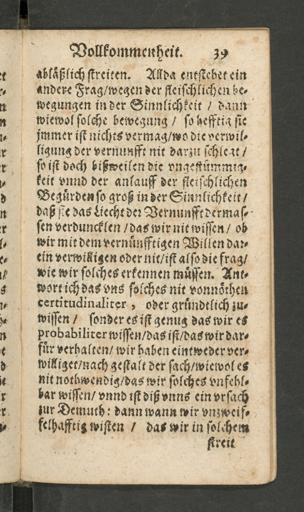 Vollkommenheit. 39
abläßlich streiten. Allda entstehet ein
andere Frag/wegen der fleischlichen be-
wegungen in der Sinnlichkeit / dann
wiewol solche bewegung / so hefftig sie
jmmer ist nichts vermag/wo die verwil-
ligung der vernunfft nit darzu schlegt /
so ist doch bißweilen die vngestümmig-
keit vnnd der anlauff der fleischlichen
Begürden so groß in der Sinnlichkeit /
daß sie das Liecht der Vernunfft dermas-
sen verduncklen / das wir nit wissen / ob
wir mit dem vernünfftigen Willen dar-
ein verwilligen oder nit/ist also die frag/
wie wir solches erkennen müssen. Ant-
wort ich das vns solches nit vonnöthen
certitudinaliter, oder gründtlich zu-
wissen / sonder es ist genug das wir es
probabiliter wissen/das ist/das wir dar-
für verhalten/ wir haben eintweder ver-
williget/nach gestalt der sach/wiewol es
nit nothwendig/das wir solches vnfehl-
bar wissen/ vnnd ist diß vnns ein vrsach
zur Demuth: dann wann wir vnzweif-
felhafftig wisten / das wir in solchem
streit